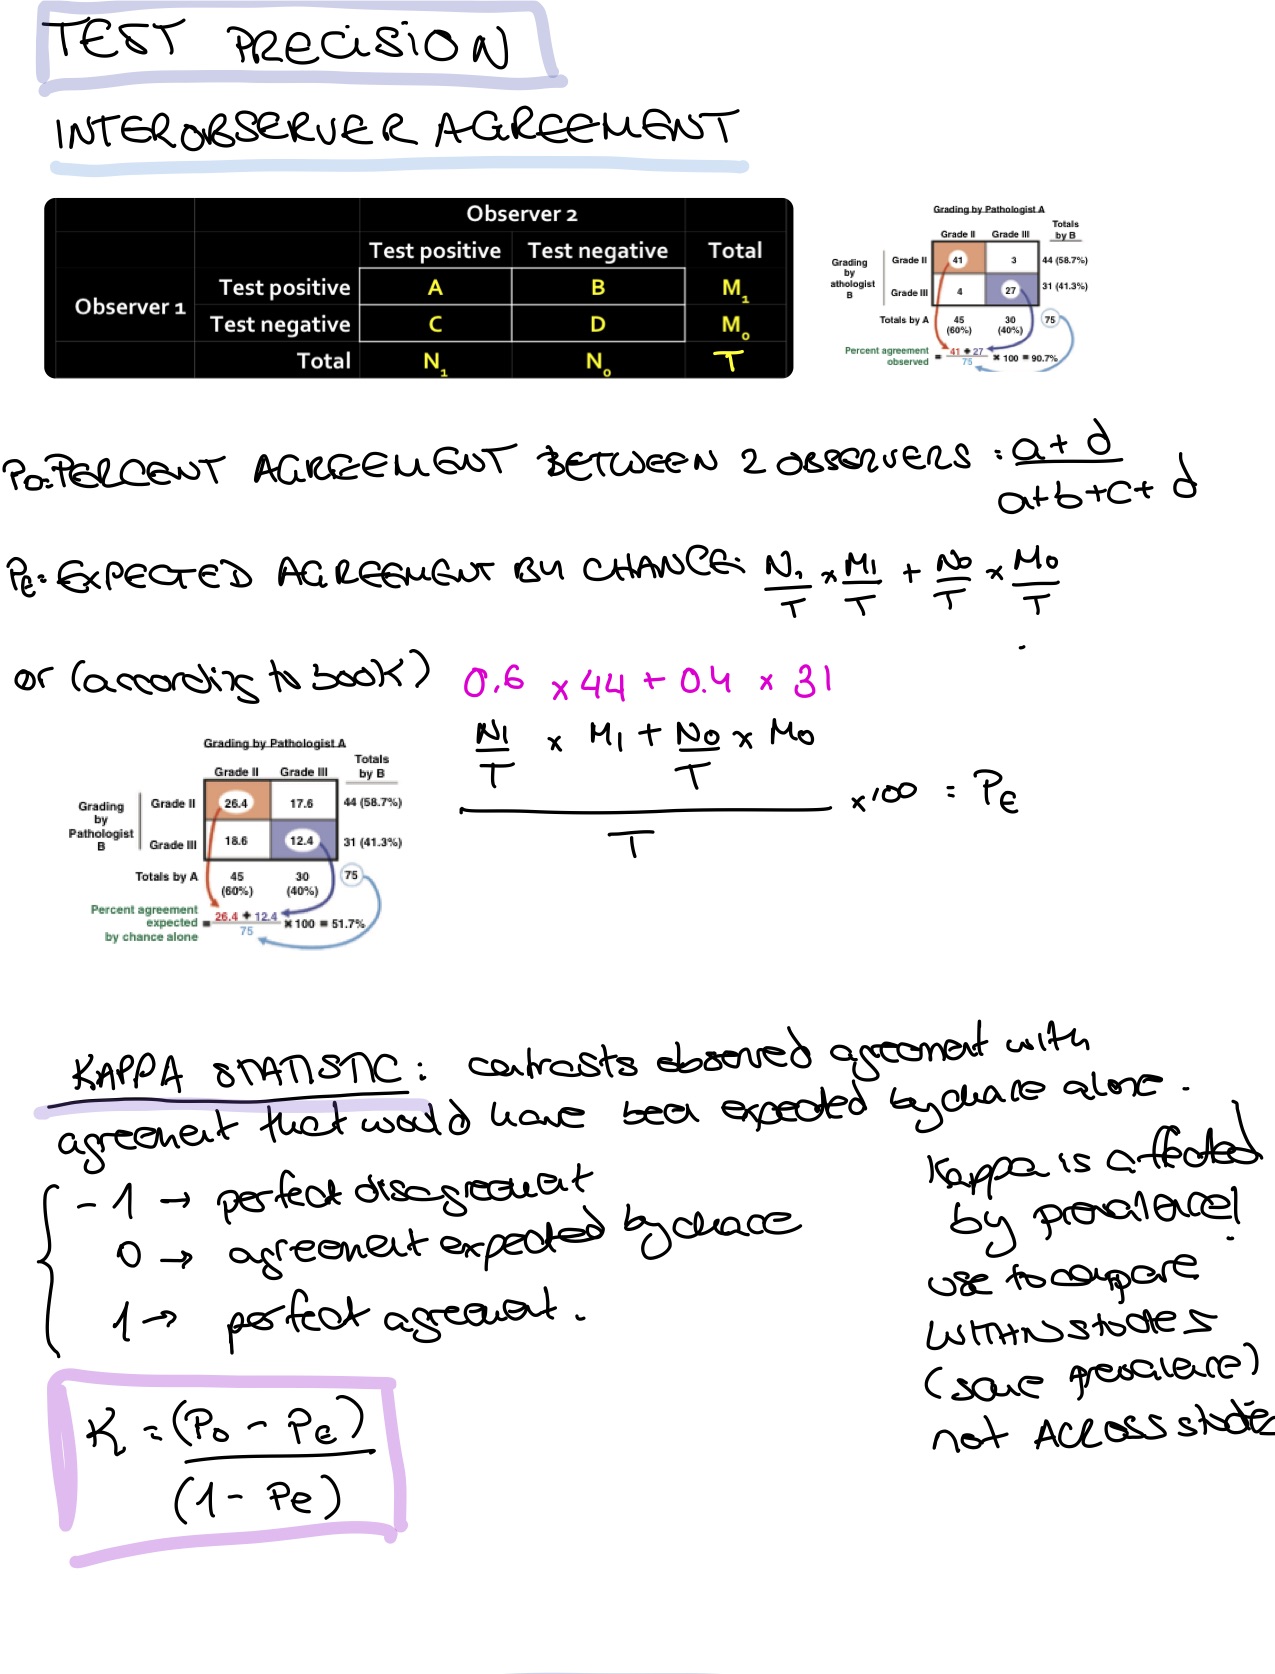 TEST PRECISION
INTEROBSERVER AGREEMENT
Observer 2
Test positive Test negative Total
Observer 1
Test positive A B M1
Test negative C D M0
Total N1 N0 T
Grading by Pathologist A
Grade II Grade III Totals by B
Grading by athologist B
Grade II 41 3 44 (58.7%)
Grade III 4 27 31 (41.3%)
Totals by A 45 (60%) 30 (40%) 75
Percent agreement observed = 41 + 27 / 75 × 100 = 90.7%
Po: PERCENT AGREEMENT BETWEEN 2 OBSERVERS : a + d / a+b+c+d
PE: EXPECTED AGREEMENT BY CHANCE: N1/T × M1/T + N0/T × M0/T
or (according to book) 0.6 × 44 + 0.4 × 31
N1/T × M1 + N0/T × M0
/ T × 100 = PE
Grading by Pathologist A
Grade II Grade III Totals by B
Grading by Pathologist B
Grade II 26.4 17.6 44 (58.7%)
Grade III 18.6 12.4 31 (41.3%)
Totals by A 45 (60%) 30 (40%) 75
Percent agreement expected by chance alone = 26.4 + 12.4 / 75 × 100 = 51.7%
KAPPA STATISTIC: contrasts observed agreement with
agreement that would have been expected by chance alone.
-1 → perfect disagreement
0 → agreement expected by chance
1 → perfect agreement.
Kappa is affected
by prevalence!
use to compare
WITHIN studies
(same prevalence)
not ACROSS studies
K = (Po - PE) / (1 - Pe)